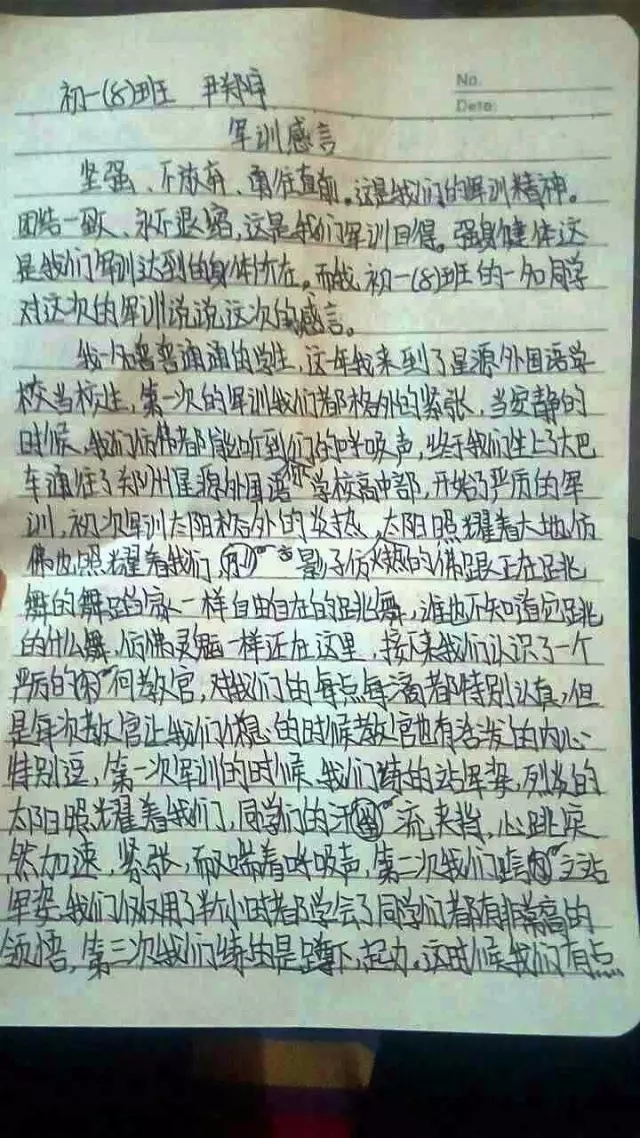 No.
Date:
初一(8)班 尹郑宇
军训感言
坚强、不放弃、勇往直前。这是我们的军训精神。
团结一致、永不退缩,这是我们军训目得。强身健体这
是我们军训达到的身体所在。而我 初一(8)班的一名同学
对这次的军训说说这次的感言。
我一名普普通通的学生,这年我来到了星源外国语学
校当校生,第一次的军训我们都格外的紧张,当安静的
时候,我们仿佛都能听到你们的呼吸声,终于我们坐上了大巴
车通往了郑州星源外国语学校高中部,开始了严质的军
训,初次军训太阳格外的炎热,太阳照耀着大地仿
佛也照耀着我们,影子仿佛跟正在跳
舞的舞蹈家一样自由自在的跳舞,谁也不知道它跳
的什么舞,仿佛灵魂一样还在这里,接下来我们认识了一个
严厉的何教官,对我们的每点每滴都特别认真,但
是每次教官让我们休息的时候教官也有活发的内心
特别逗,第一次军训的时候,我们练的站军姿,烈炎的
太阳照耀着我们,同学们的汗流夹挡,心跳突
然加速,紧张,而又喘着呼吸声,第二次我们站
军姿,我们仅仅用了半个小时都学会了同学们都有非常高的
领悟,第三次我们练的是蹲下,起力。这时候我们有点